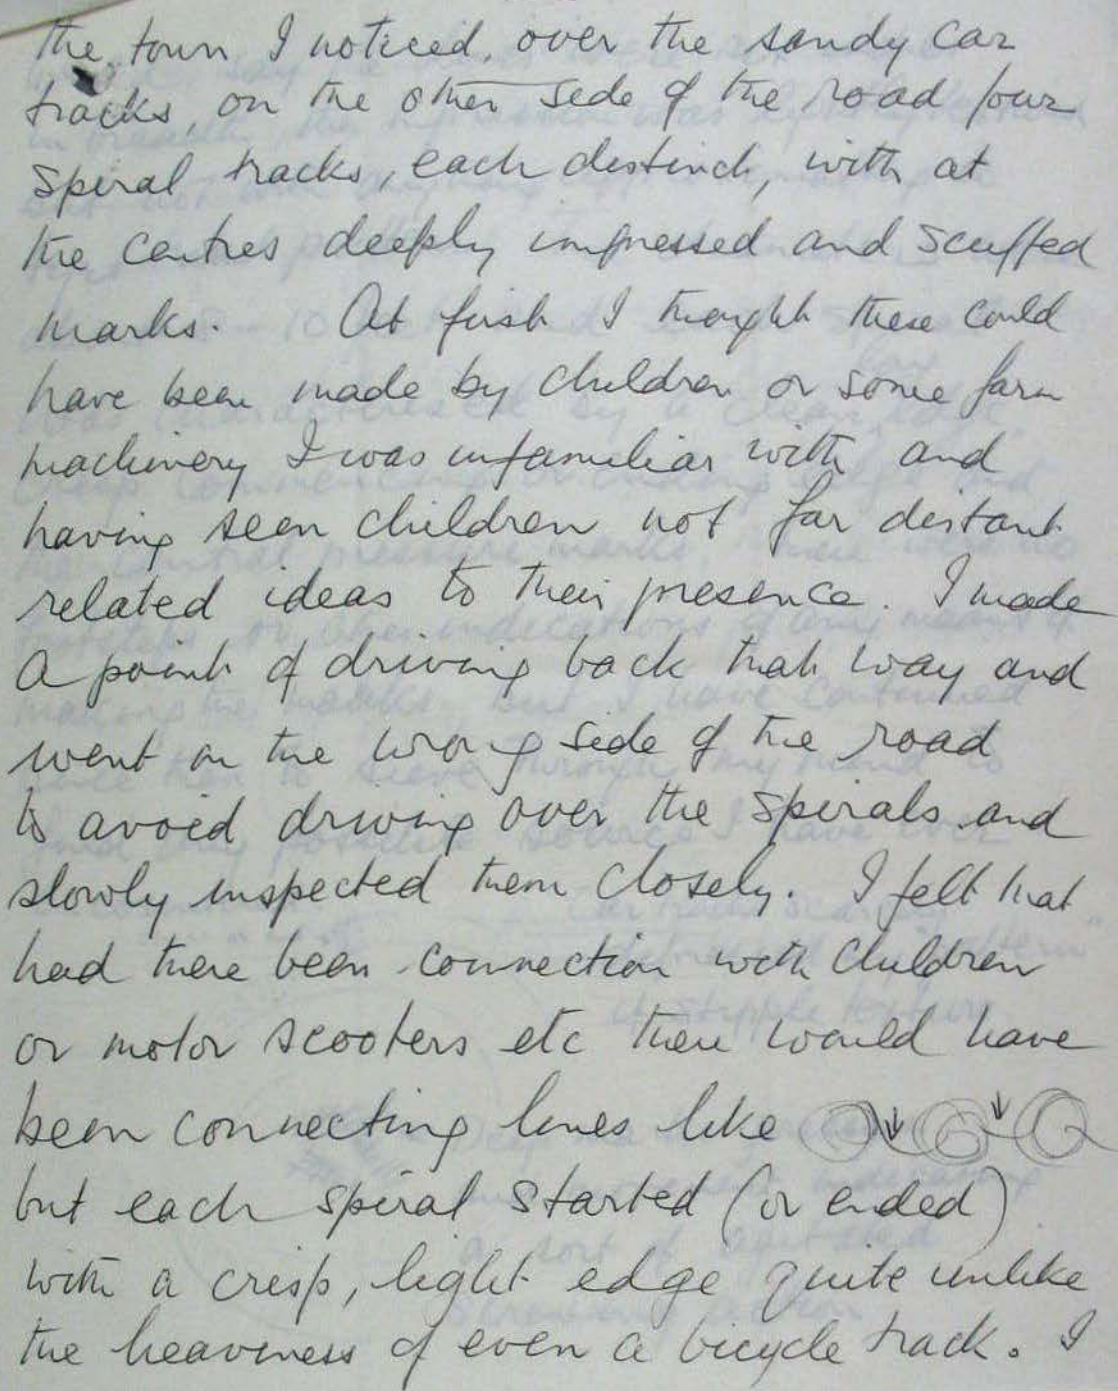 the town I noticed, over the sandy car
tracks, on the other side of the road four
spiral tracks, each distinct, with at
the centres deeply impressed and scuffed
marks. At first I thought these could
have been made by children or some farm
machinery I was unfamiliar with and
having seen children not far distant
related ideas to their presence. I made
a point of driving back that way and
went on the wrong side of the road
to avoid driving over the spirals and
slowly inspected them closely. I felt that
had there been connection with children
or motor scooters etc there would have
been connecting lines like
but each spiral started (or ended)
with a crisp, light edge quite unlike
the heaviness of even a bicycle track. I